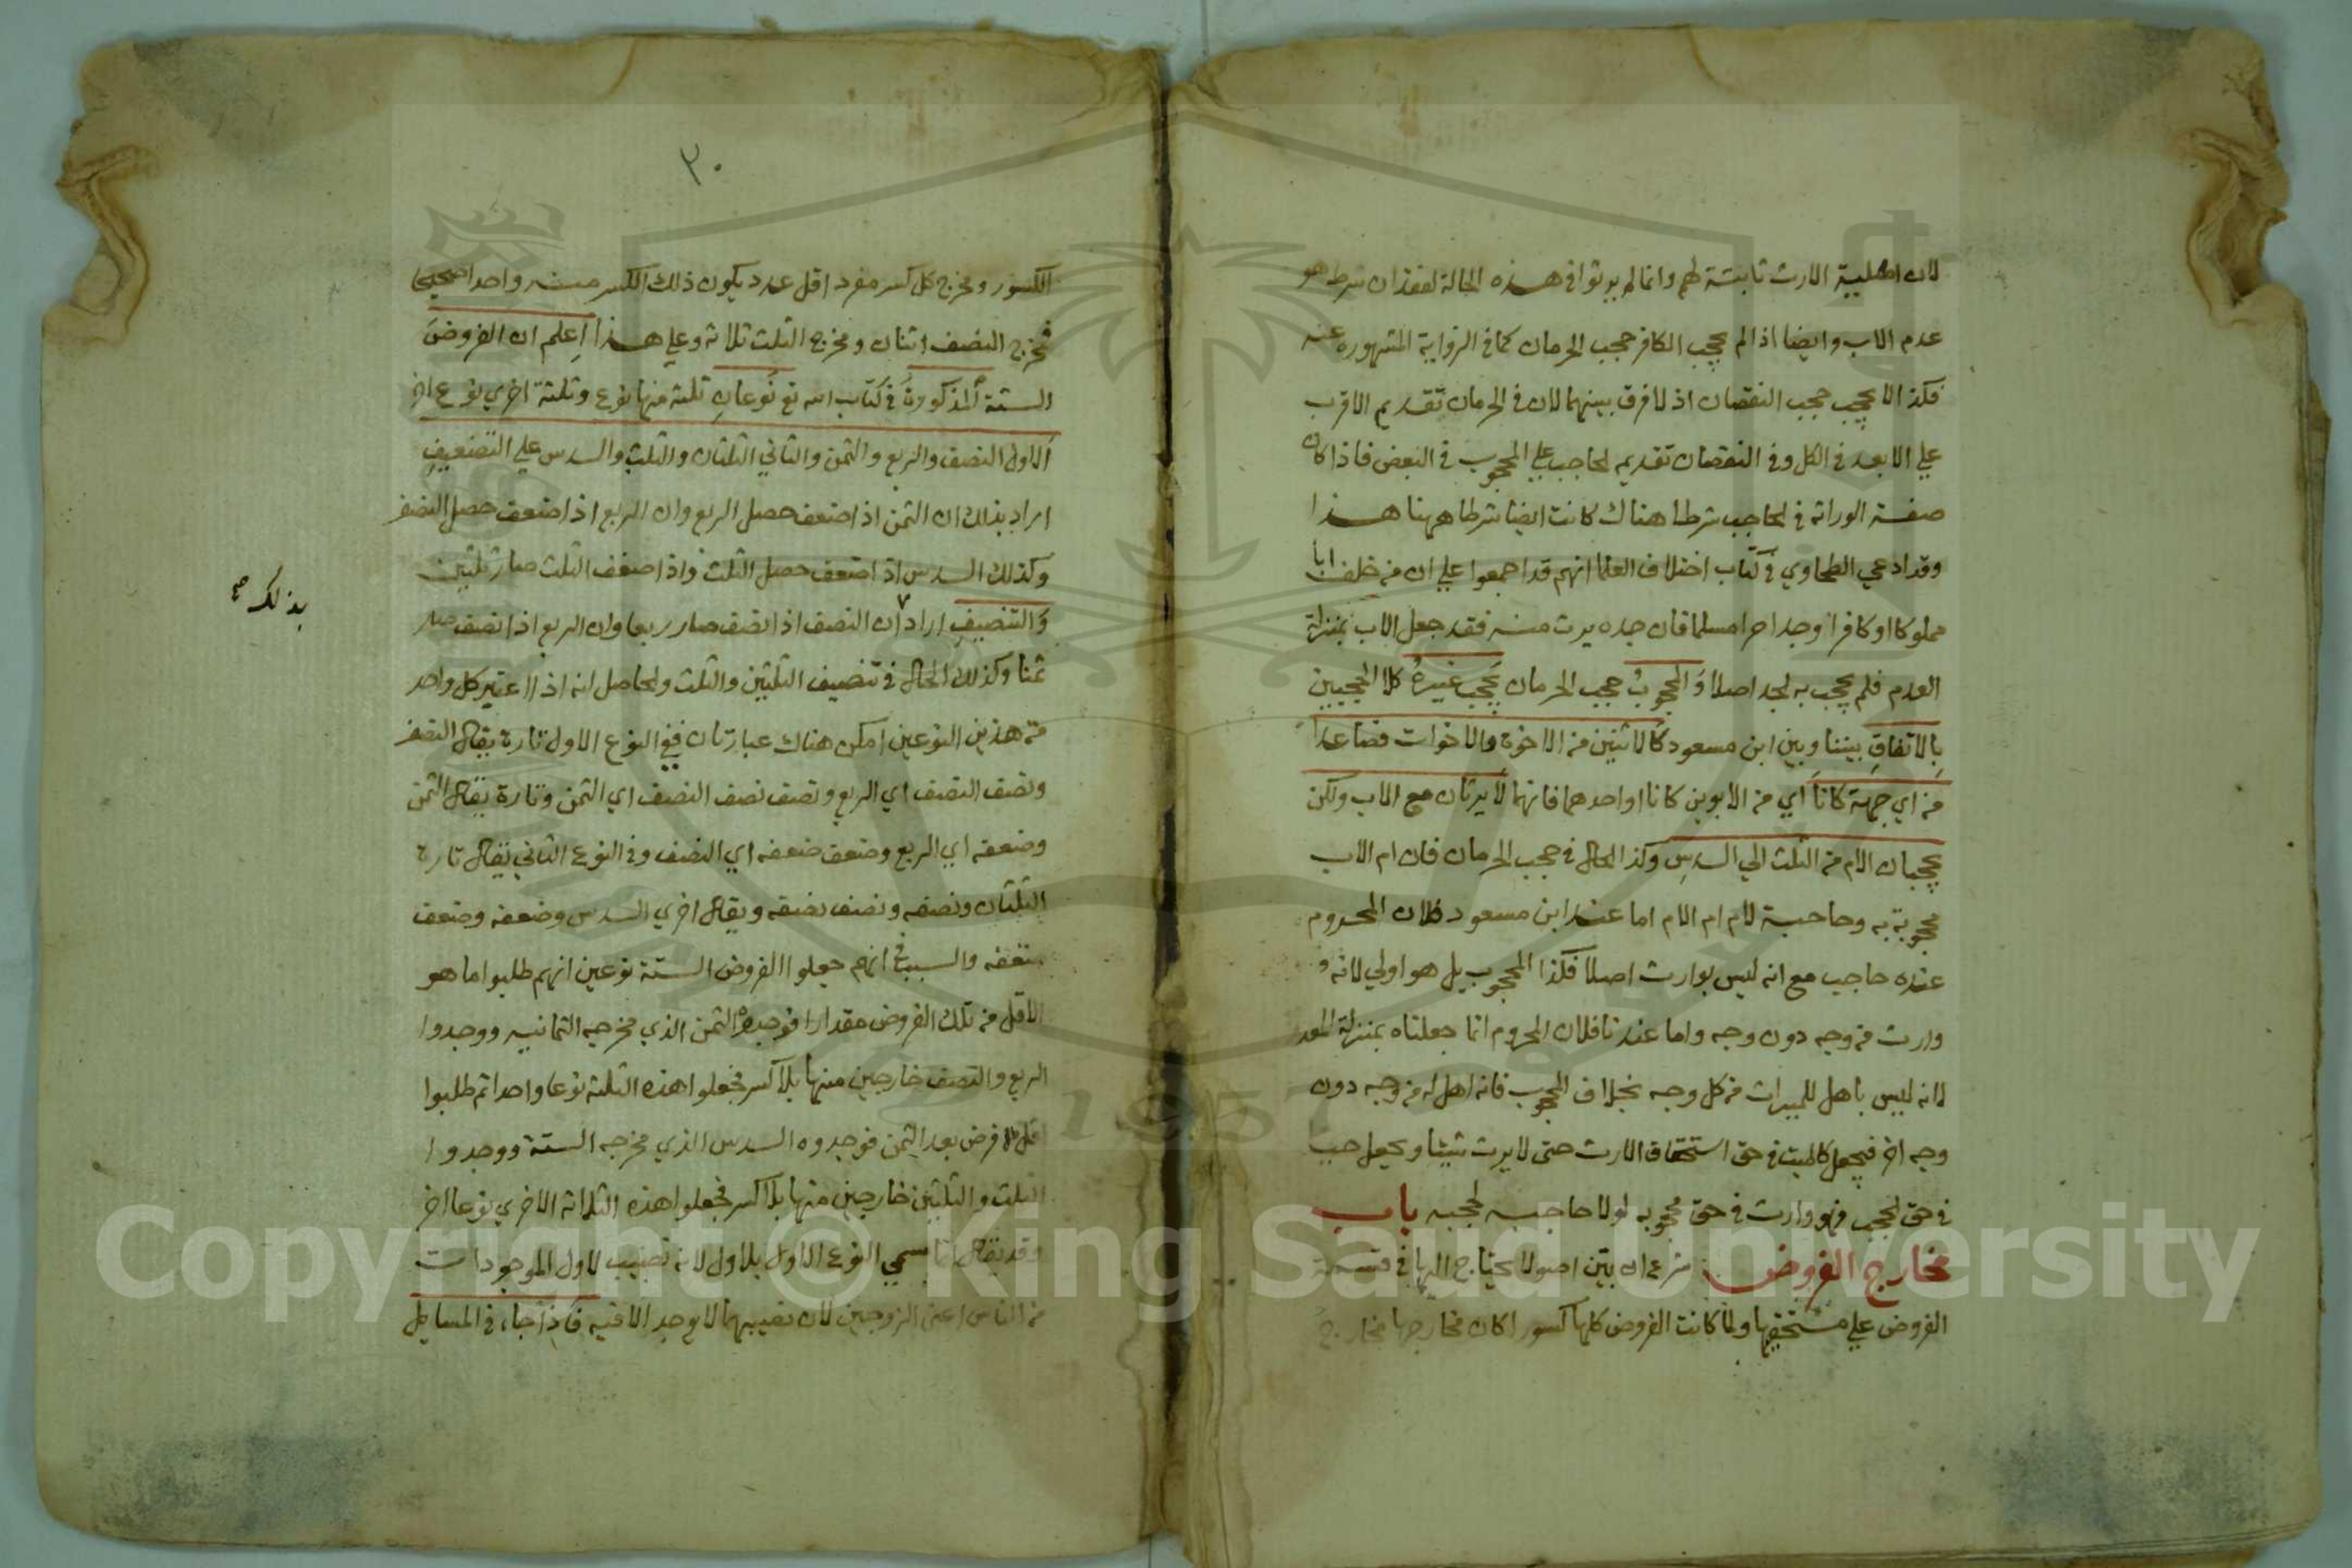 لان اهلية الارث ثابتة لهم وانما لم يرثوا في هذه الحالة لفقدان شرط هو
عدم الاب وايضا اذا لم يحجب الكافر حجب الحرمان كما في الرواية المشهوره عنه
فكذا لا يحجب حجب النقصان اذ لا فرق بينهما لان في الحرمان تقديم الاقرب
علي الابعد في الكل وفي النقصان تقديم الحاجب علي المحجوب في البعض فاذا كان
صفة الوراثه في الحاجب شرطا هناك كانت ايضا شرطا ههنا هذا
وقد ادعي الطحاوي في كتاب اختلاف العلما انهم قد اجمعوا علي ان من خلف ابا
مملوكا او كافرا وجدا حرا مسلما فان جده يرث منه فقد جعل الاب بمنزلة
العدم فلم يحجب به الجد اصلا والمحجوب حجب الحرمان يحجب غيره كلا الحجبين
بالاتفاق بيننا وبين ابن مسعود كالاثنين من الاخوة والاخوات فصاعدا
من اي جهة كانا اي من الابوين كانا او احدهما فانهما لا يرثان مع الاب ولكن
يحجبان الام من الثلث الي السدس وكذا الحال في حجب الحرمان فان ام الاب
محجوبة به وحاجبة لام ام الام اما عند ابن مسعود فلان المحروم
عنده حاجب مع انه ليس بوارث اصلا فكذا المحجوب بل هو اولي لانه
وارث من وجه دون وجه واما عندنا فلان المحروم انما جعلناه بمنزلة المعد
لانه ليس باهل للميراث من كل وجه بخلاف المحجوب فانه اهل له من وجه دون
وجه اخر فيجعل كالميت في حق استحقاق الارث حتى لا يرث شيئا ويجعل حيا
في حق الحجب فهو وارث في حق محجوبه لولا حاجبه لحجبه باب
مخارج الفروض شرع ان يبين اصولا يحتاج اليها في قسمة
الفروض علي مستحقيها ولما كانت الفروض كلها كسورا كان مخارجها مخارج
٣٠
الكسور ومخرج كل كسر مفرد اقل عدد يكون ذلك الكسر منه واحدا صحيحا
فمخرج النصف اثنان ومخرج الثلث ثلاثه وعلي هذا اعلم ان الفروض
الستة المذكورة في كتاب الله تع نوعان ثلثه منها نوع وثلثة اخري نوع اخر
الاول النصف والربع والثمن والثاني الثلثان والثلث والسدس علي التضعيف
اراد بذلك ان الثمن اذا ضعف حصل الربع وان الربع اذا ضعف حصل النصف
وكذلك السدس اذا ضعف حصل الثلث واذا ضعف الثلث صار ثلثين
والتنصيف اراد ان النصف اذا نصف صار ربعا وان الربع اذا نصف صار
بذلك صح
ثمنا وكذلك الحال في تنصيف الثلثين والثلث والحاصل انه اذا اعتبر كل واحد
من هذين النوعين امكن هناك عبارتان ففي النوع الاول تارة يقال النصف
ونصف النصف اي الربع ونصف نصف النصف اي الثمن وتارة يقال الثمن
وضعفه اي الربع وضعف ضعفه اي النصف وفي النوع الثاني يقال تارة
الثلثان ونصفه ونصف نصفه ويقال اخري السدس وضعفه وضعف
ضعفه والسبب في انهم جعلوا الفروض الستة نوعين انهم طلبوا ما هو
الاقل من تلك الفروض مقدارا فوجدوه الثمن الذي مخرجه الثمانيه ووجدوا
الربع والنصف خارجين منها بلا كسر فجعلوا هذه الثلثه نوعا واحدا ثم طلبوا
اقل فرض بعد الثمن فوجدوه السدس الذي مخرجه الستة ووجدوا
الثلث والثلثين خارجين منها بلا كسر فجعلوا هذه الثلاثه الاخري نوعا اخر
وقد يقال انما سمي النوع الاول بلاول لانه نصيب لاول الموجودات
من الناس اعني الزوجين لان نصيبهما لا يوجد الا فيه فاذا جاء في المسايل
Copyright © King Saud University
1957